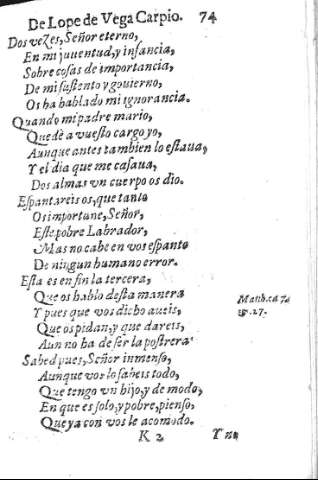 De Lope de Vega Carpio. 74
Dos vezes, Señor eterno,
En mi juuentud, y infancia,
Sobre cosas de importancia,
De mi sustento y gouierno,
Os ha hablado mi ignorancia.
Quando mi padre mario,
Quedè a vuesto cargo yo,
Aunque antes tambien lo estaua,
Y el dia que me casaua,
Dos almas vn cuerpo os dio.
Espantareis os, que tanto
Os importune, Señor,
Este pobre Labrador,
Mas no cabe en vos espanto
De ningun humano error.
Esta es en fin la tercera,
Que os hablo desta manera
Y pues que vos dicho aueis,
Que os pidan, y que dareis,
Aun no ha de ser la postrera
Sabed pues, Señor inmenso,
Aunque vos lo sabeis todo,
Que tengo vn hijo, y de modo,
En que es solo, y pobre, pienso,
Que ya con vos le acomodo.
Matth. ca 7.
27.
K 2